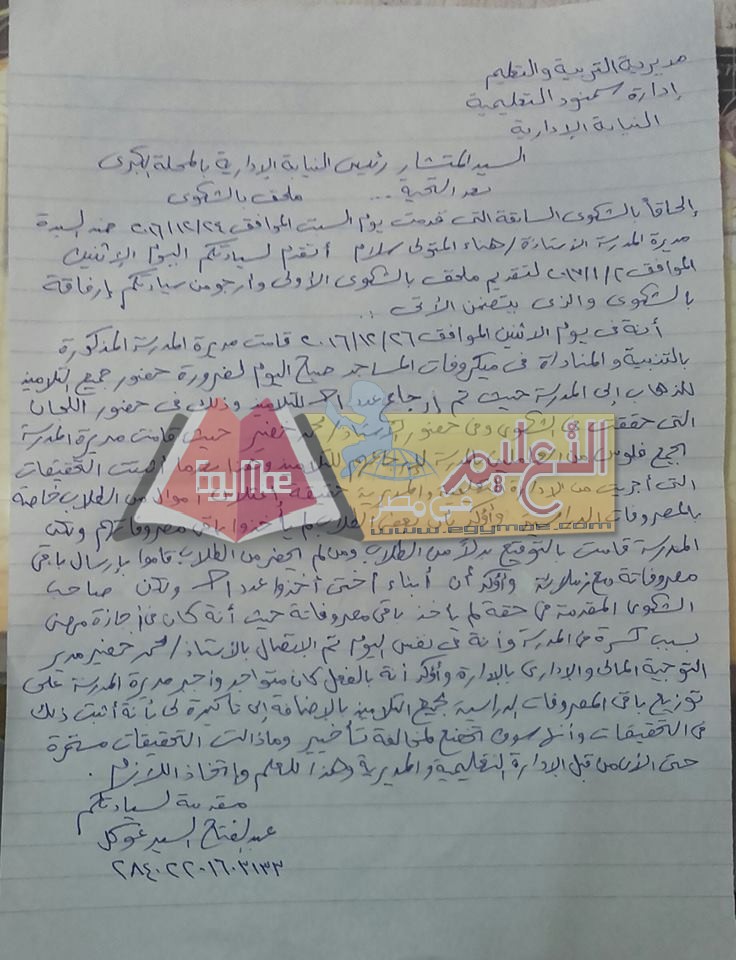 مديرية التربية والتعليم
إدارة سمنود التعليمية
النيابة الإدارية
السيد المتشار رئيس النيابة الإدارية بالمحلة الكبرى
بعد التحية ... ملحق بالشكوى
إلحاقاً بالشكوى السابقة التى قدمت يوم السبت الموافق ٢٠١٦/١٢/٢٤ ضد السيدة
مديرة المدرسة الأستاذة / هناء المتولى سلام أتقدم لسيادتكم اليوم الإثنين
الموافق ٢٠١٧/١/٢ لتقديم ملحق بالشكوى الأولى وأرجو من سيادتكم إرفاقة
بالشكوى والذى يتضمن الأتى :
أنة فى يوم الاثنين الموافق ٢٠١٦/١٢/٢٦ قامت مديرة المدرسة المذكورة
بالتنبية والمناداة فى ميكروفات المساجد صباح اليوم لضرورة حضور جميع التلاميذ
للذهاب إلى المدرسة حيث تم إرجاع عدد للتلاميذ وذلك فى حضور اللجان
التى حققت فى الشكوى وفى حضور محمد خضير حيث قامت مديرة المدرسة
بجمع فلوس من المدرسة التحقيقات
التى أجريت من الإدارة والمديرية أموال من الطلاب خاصة
بالمصروفات وأؤكد بأن بعض الطلاب لم يأخذوا باقى مصروفاتهم ولكن
المدرسة قامت بالتوقيع بدلاً من الطلاب ومن لم يحضر من الطلاب قاموا بإرسال باقى
مصروفاتة مع زملائة وأؤكد أن أبناء أختى أخذوا عدد ولكن صاحب
الشكوى المقدمة فى حقة لم يأخذ باقى مصروفاتة حيث أنة كان فى أجازة مرضى
بسبب كسرة فى المدرسة وأنة فى نفس اليوم تم الاتصال بالأستاذ / محمد خضير مدير
التوجية المالى والادارى بالادارة وأؤكد أنة بالفعل كان متواجد وأجبر مديرة المدرسة على
توزيع باقى المصروفات الدراسية لجميع التلاميذ بالإضافة إلى تأكيدة لى بأنة أثبت ذلك
فى التحقيقات وأنها سوف تخضع لمخالفة تأخير ومازالت التحقيقات مستمرة
حتى الأن من قبل الإدارة التعليمية والمديرية وهذا للعلم وإتخاذ اللازم .
مقدمة لسيادتكم
عبدالفتاح السيد
٢٨٤٠٢٢٠١٦٠٣١٣٣
التعليم
فى مصر
EgyMe
www.egymoe.com